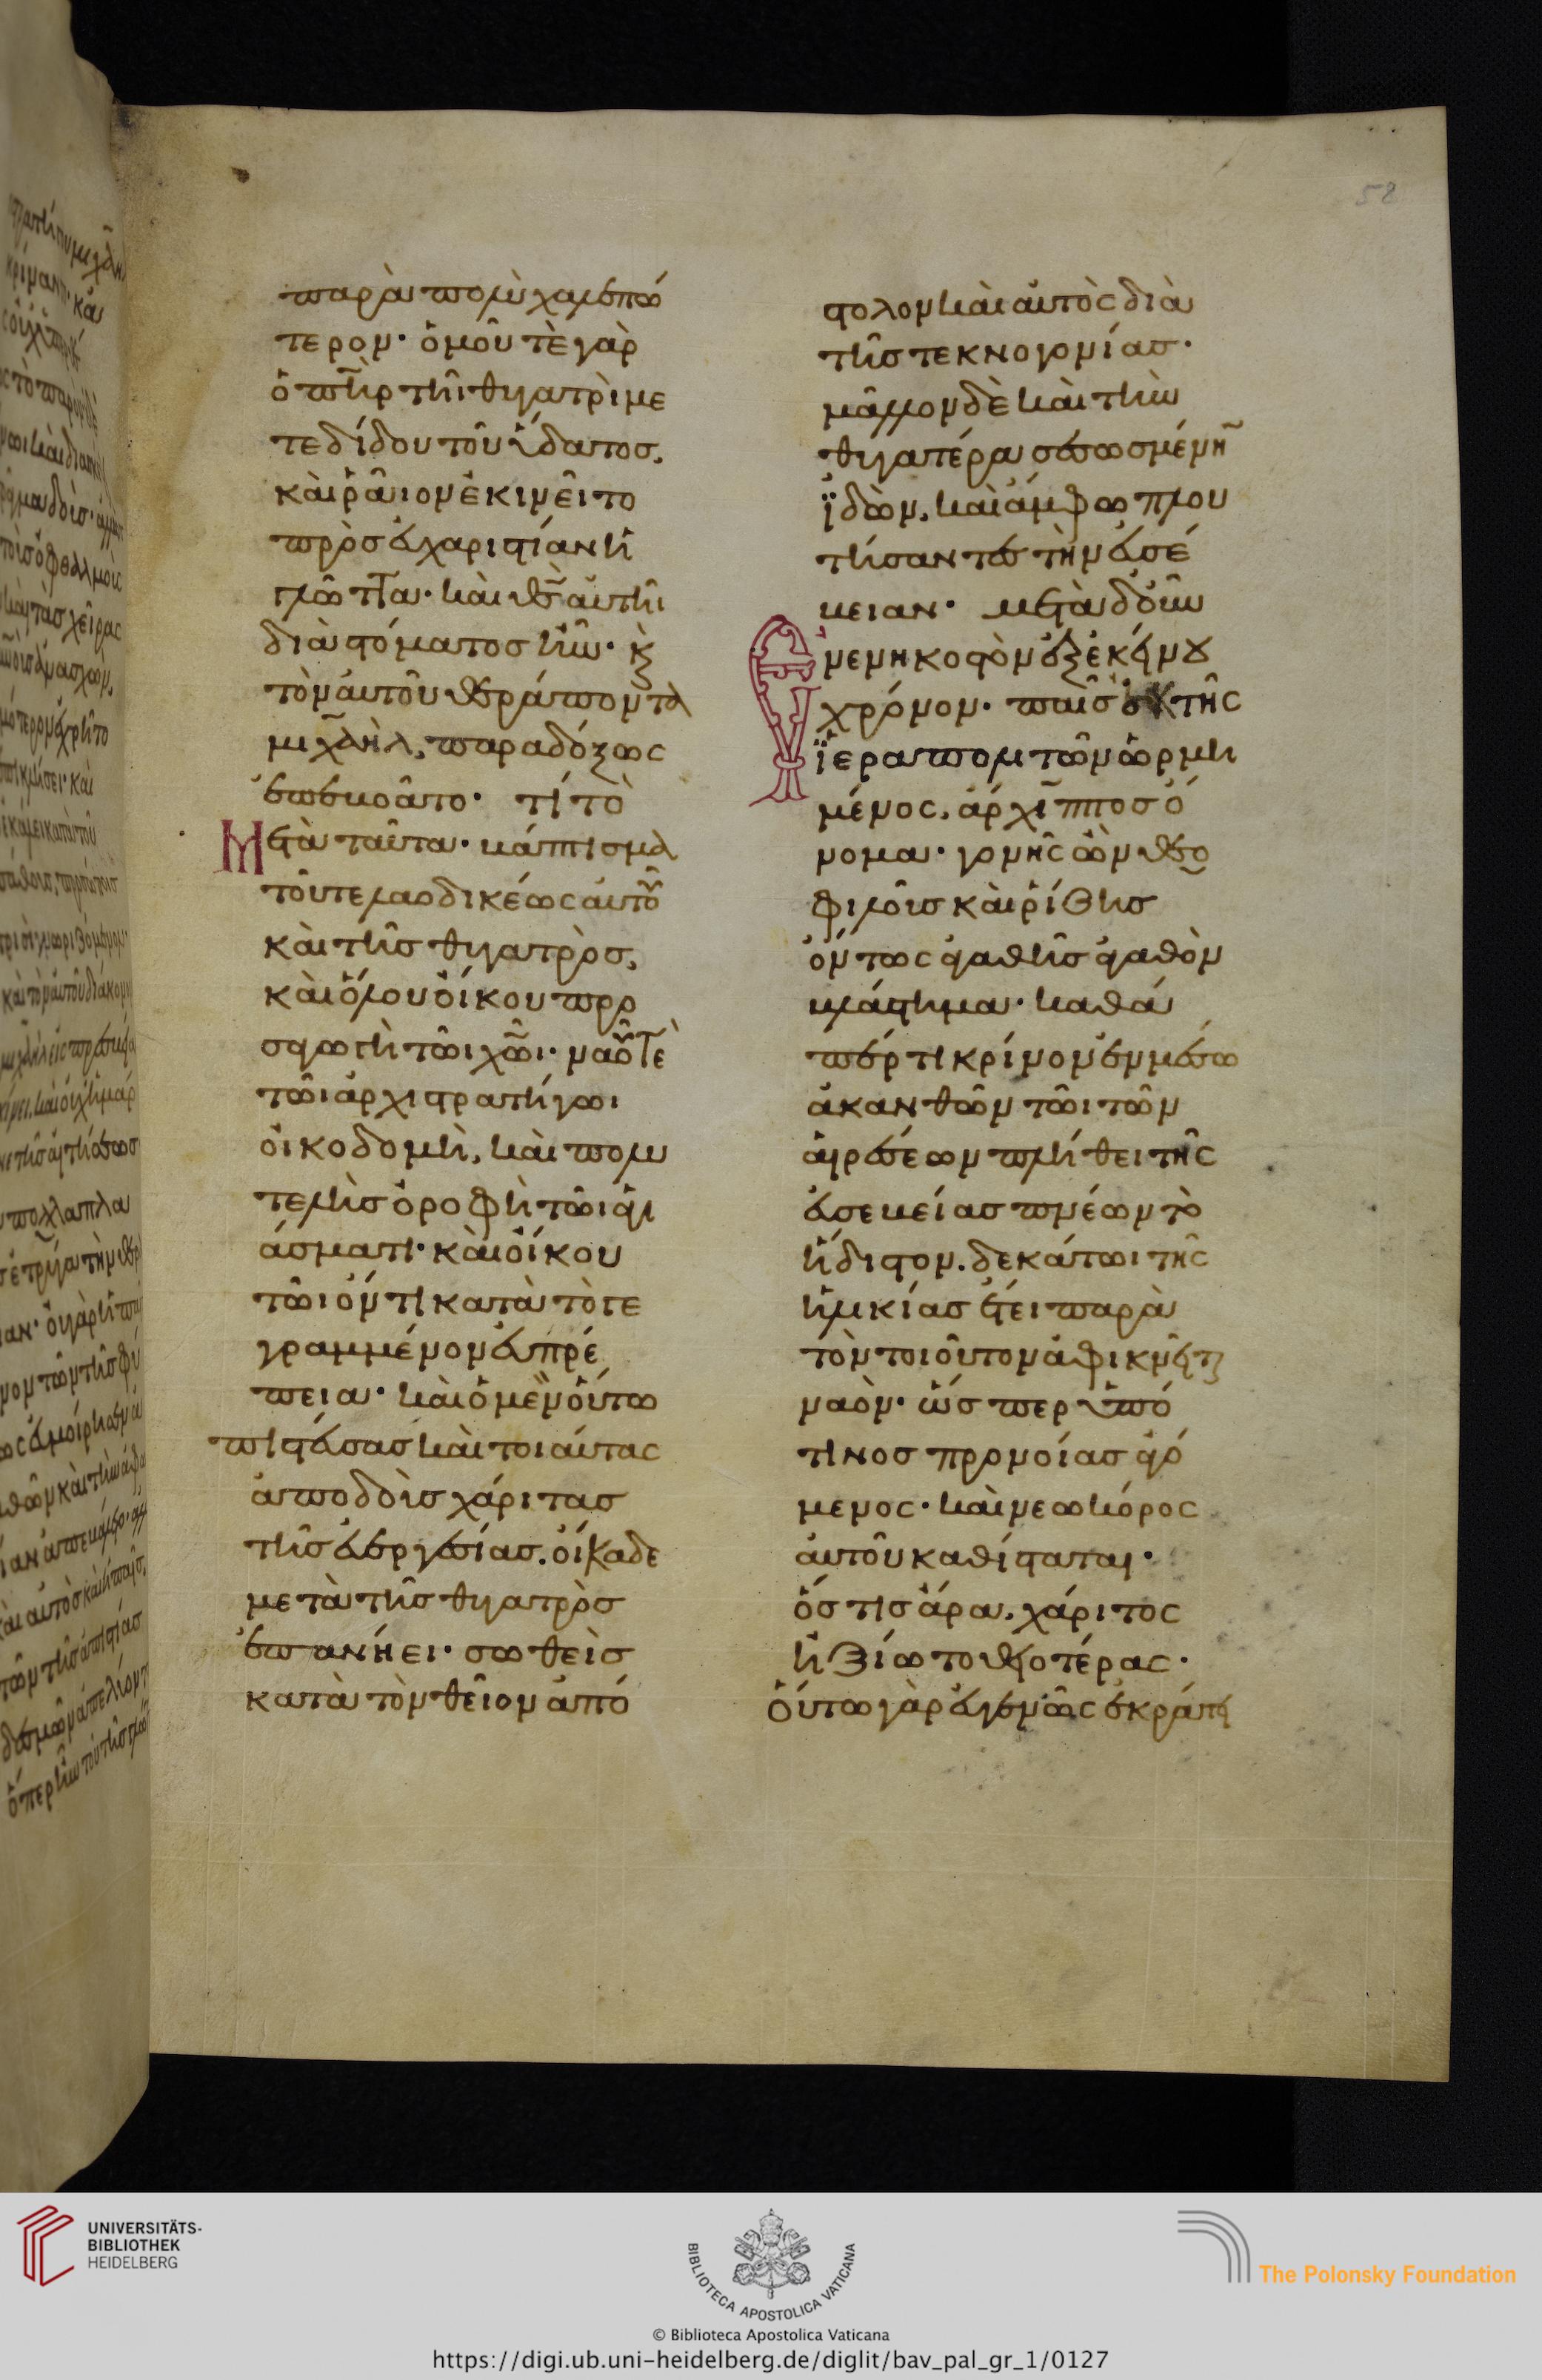 παρὰ πολὺ χαλεπώ
τερον· ὁμοῦ τὲ γὰρ
ὁ πη̅ρ τῆι θυγατρὶ με
τεδίδου τοῦ ὕδατος,
καὶ ῥᾶιον ἐκινεῖτο
πρὸς εὐχαριστίαν ἡ
γλῶττα· καὶ θς̅ αὐτῆι
διὰ στόματος ἦν· κ̀
τὸν αὐτοῦ θεράποντα
μιχαὴλ, παραδόξως
ἐπεβοᾶτο· τί τὸ
Μετὰ ταῦτα· βάπτισμα
τοῦτε λαοδικέως αὐτοῦ
καὶ τῆς θυγατρὸς,
καὶ ὅλου οἴκου προ
σαγωγὴ τῶι χω̅ι· ναοῦ τὲ
τῶι ἀρχιστρατήγωι
οἰκοδομὴ, καὶ πολυ
τελὴς ὀροφὴ τῶι ἁγι
άσματι· καὶ οἴκου
τῶι ὄντι κατὰ τὸ γε
γραμμένον εὐπρέ
πεια· καὶ ὁ μὲν οὕτω
πιστεύσας καὶ τοιαύτας
ἀποδδοὺς χάριτας
τῆς εὐεργεσίας, οἴκαδε
μετὰ τῆς θυγατρὸς
ἐπανήει· σωθεὶς
κατὰ τὸν θεῖον ἀπό
στολον καὶ αὐτὸς διὰ
τῆς τεκνογονίας·
μᾶλλον δὲ καὶ τὴν
θυγατέρα σεσωσμένη̅
ἰδὼν, καὶ ἄμφω πλου
τήσαντες τὴν εὐσέ
βειαν· μετὰ δ' οὖν
Ἐνενηκοστὸν ἐξ ἐκείνου
χρόνον· παῖς ἐκ τῆς
ἱεραπολιτῶν ὡρμη
μένος, ἀρχιππος ὄ
νομα· γονῆς ὢν θεο
φιλοῦς καὶ ῥίζης
ὄντως ἀγαθῆς ἀγαθὸν
βλάστημα· καθά
περ τι κρίνον ἐν μέσω
ἀκανθῶν τῶι τῶν
αἱρέσεων πλήθει τῆς
εὐσεβείας πνέων τὸ
ἥδιστον. δεκάτωι τῆς
ἡλικίας ἔτει παρὰ
τὸν τοιοῦτον ἀφικνεῖται
ναὸν· ὥς περ ὑπό
τινος προνοίας ἀγό
μενος· καὶ νεωκόρος
αὐτοῦ καθίσταται·
ὅς τις ἄρα, χάριτος
ἠξίωτο θειοτέρας·
Οὕτω γὰρ εὐγενῶς ἐκράτει
58
UNIVERSITÄTS-
BIBLIOTHEK
HEIDELBERG
BIBLIOTECA APOSTOLICA VATICANA
The Polonsky Foundation
© Biblioteca Apostolica Vaticana
https://digi.ub.uni-heidelberg.de/diglit/bav_pal_gr_1/0127